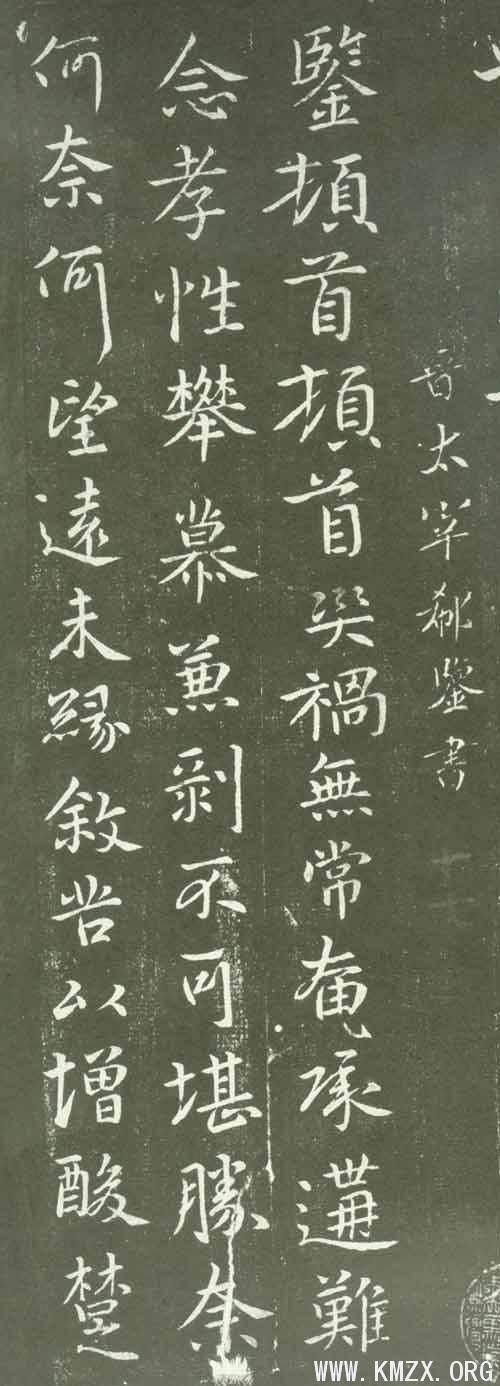 晉太宰郗鑒書
鑒頓首頓首災禍無常奄承遘難
念孝性攀慕兼剝不可堪勝奈
何奈何望遠未緣敘苦以增酸楚
WWW.KMZX.ORG